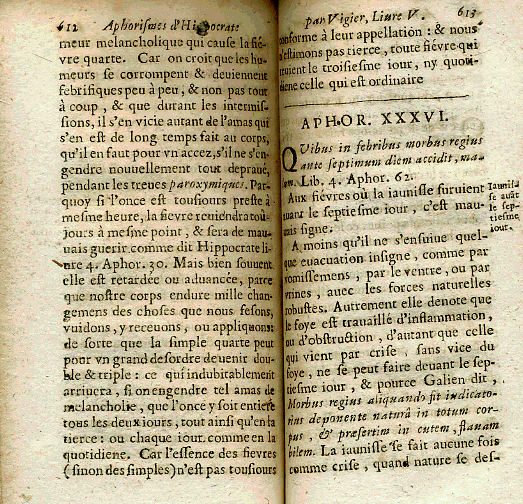 612 Aphorismes d'Hippocrate
meur melancholique qui cause la fié-
vre quarte. Car on croit que les hu-
meurs se corrompent & deuiennent
febrifiques peu à peu, & non pas tout
à coup, & que durant les intermis-
sions, il s'en vicie autant de l'amas qui
s'en est de long temps fait au corps,
qu'il en faut pour vn accez, s'il ne s'en-
gendre nouuellement tout depraué,
pendant les treues paroxymiques. Par-
quoy si l'once est tousiours preste à
mesme heure, la fievre reuiendra toû-
jours à mesme point, & sera de mau-
uais guerir comme dit Hippocrate li-
ure 4. Aphor. 30. Mais bien souuent
elle est retardée ou aduancée, parce
que nostre corps endure mille chan-
gemens des choses que nous fesons,
vuidons, y receuons, ou appliquons
de sorte que la simple quarte peut
pour vn grand desordre deuenir dou-
ble & triple: ce qui indubitablement
arriuera, si on engendre tel amas de
melancholie, que l'once y soit entiere
tous les deux iours, tout ainsi qu'en la
tierce: ou chaque iour comme en la
quotidiene. Car l'essence des fievres
(sinon des simples) n'est pas tousiours
par Vigier, Liure V. 613
conforme à leur appellation: & nous
n'estimons pas tierce, toute fiévre qui
reuient le troisiesme iour, ny quoti-
diene celle qui est ordinaire
APHOR. XXXVI.
QVibus in febribus morbus regius
ante septimum diem accidit, ma-
lum. Lib. 4. Aphor. 62.
Aux fiévres où la iaunisse suruient
auant le septiesme iour, c'est mau-
uais signe.
Iaunisse
se auãt
le sep-
tiesme
iour.
A moins qu'il ne s'ensuiue quel-
que euacuation insigne, comme par
vomissemens, par le ventre, ou par
vrines, auec les forces naturelles
robustes. Autrement elle denote que
le foye est trauaillé d'inflammation,
ou d'obstruction, d'autant que celle
qui vient par crise, sans vice du
foye, ne se peut faire deuant le sep-
tiesme iour, & pource Galien dit,
Morbus regius aliquando fit indicato-
rius deponente naturâ in totum cor-
pus, & præsertim in cutem, flauam
bilem. La iaunisse se fait aucune fois
comme crise, quand nature se des-